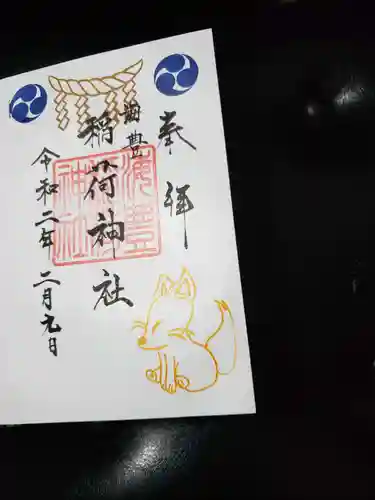 奉拝
海豊
稲荷神社
令和二年二月九日